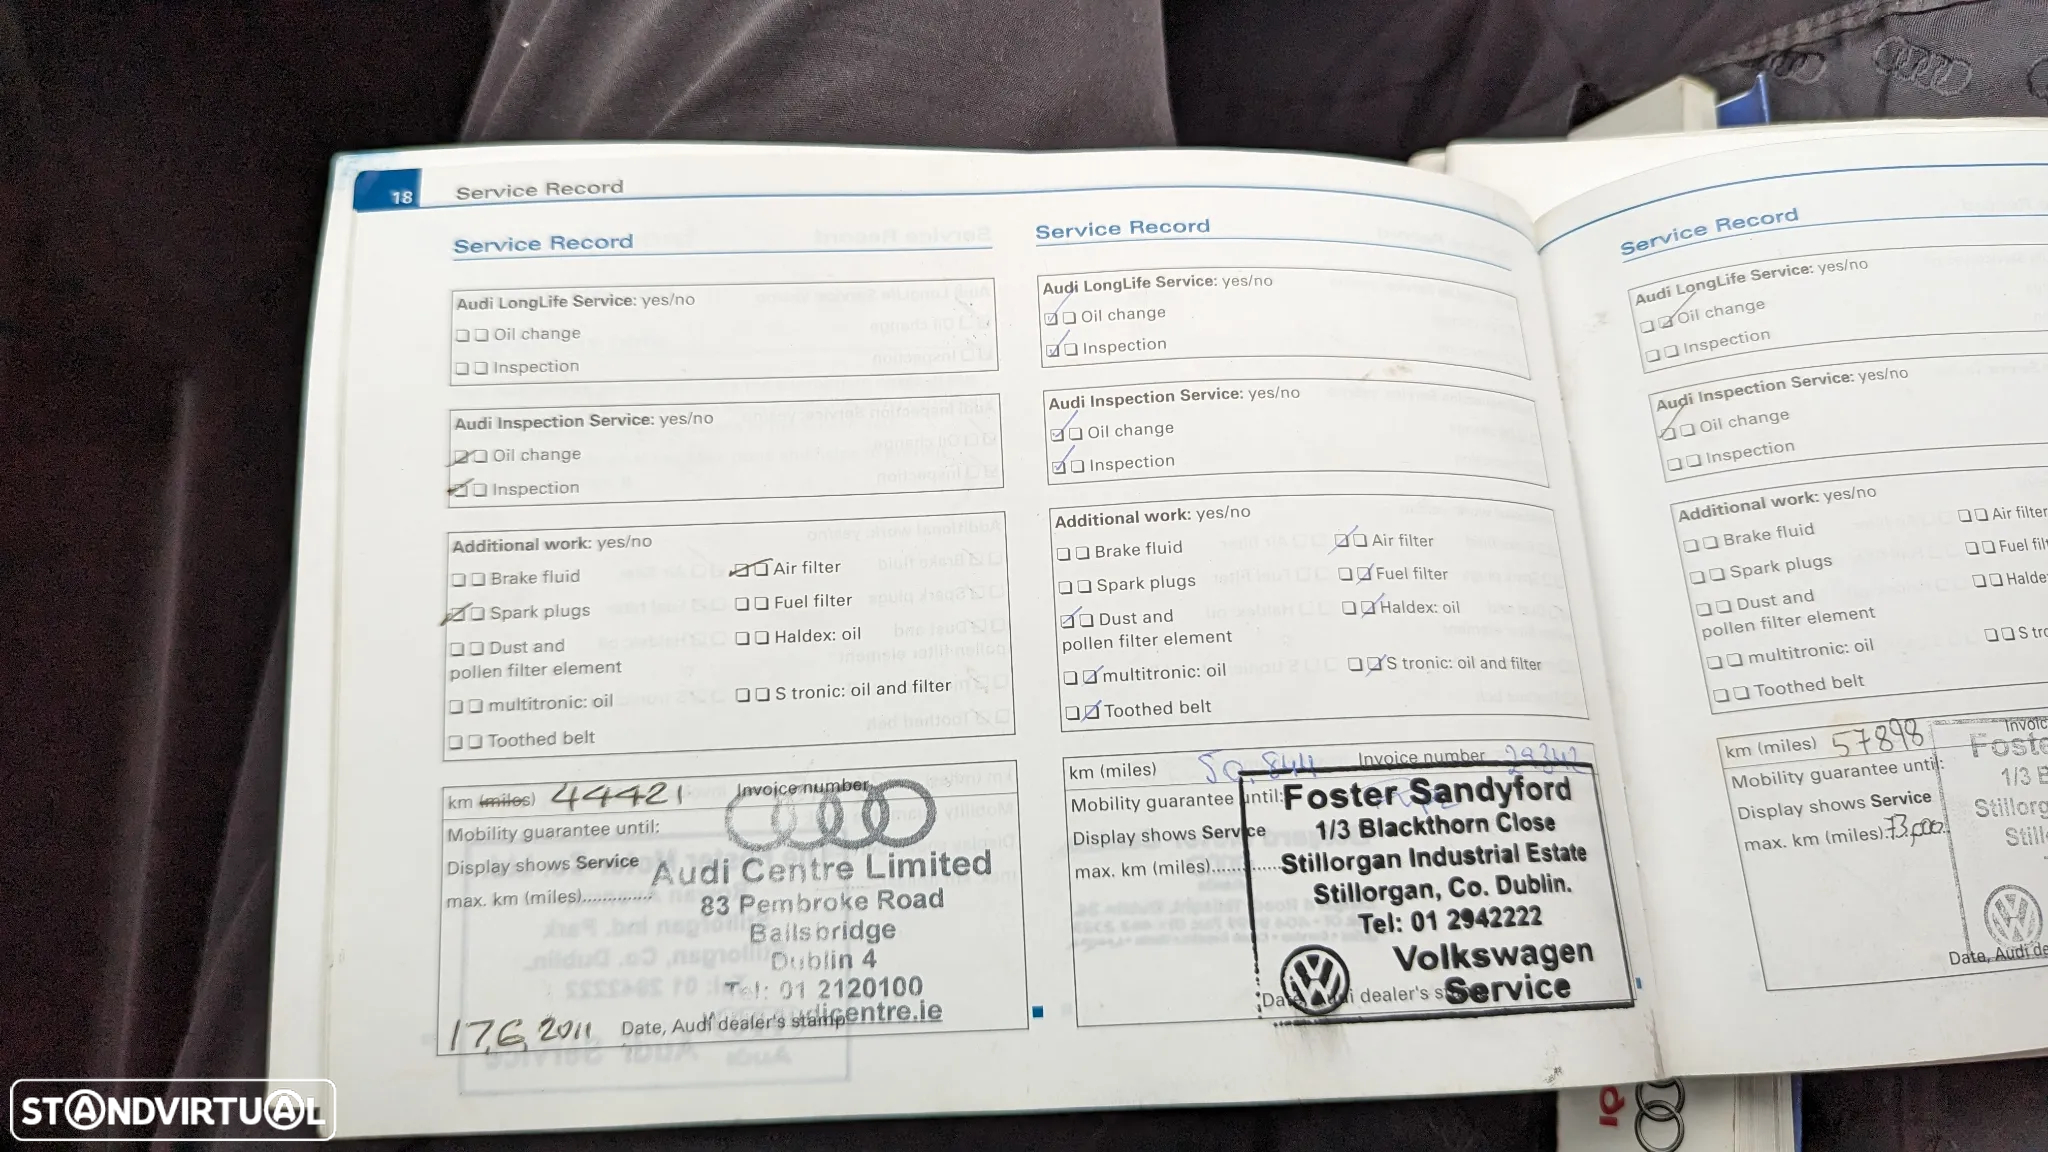 18
Service Record
Service Record
Audi LongLife Service: yes/no
Oil change
Inspection
Audi Inspection Service: yes/no
Oil change
Inspection
Additional work: yes/no
Brake fluid
Air filter
Spark plugs
Fuel filter
Dust and
pollen filter element
Haldex: oil
multitronic: oil
S tronic: oil and filter
Toothed belt
km (miles) 44421
Invoice number
Mobility guarantee until:
Display shows Service
max. km (miles)...............
Audi Centre Limited
83 Pembroke Road
Ballsbridge
Dublin 4
Tel: 01 2120100
17.6.2011
Date, Audi dealer's stamp
Service Record
Audi LongLife Service: yes/no
Oil change
Inspection
Audi Inspection Service: yes/no
Oil change
Inspection
Additional work: yes/no
Brake fluid
Air filter
Spark plugs
Fuel filter
Dust and
pollen filter element
Haldex: oil
multitronic: oil
S tronic: oil and filter
Toothed belt
km (miles) 50,844
Invoice number 29342
Mobility guarantee until:
Display shows Service
max. km (miles)...............
Foster Sandyford
1/3 Blackthorn Close
Stillorgan Industrial Estate
Stillorgan, Co. Dublin.
Tel: 01 2942222
Volkswagen
Service
Date, Audi dealer's
Service Record
Audi LongLife Service: yes/no
Oil change
Inspection
Audi Inspection Service: yes/no
Oil change
Inspection
Additional work: yes/no
Brake fluid
Air filter
Spark plugs
Fuel filt
Dust and
pollen filter element
Halde
multitronic: oil
S tro
Toothed belt
km (miles) 57898
Invoic
Mobility guarantee until:
Display shows Service
max. km (miles) 73,000
Foste
1/3 B
Stillorg
Still
Date, Audi de
STANDVIRTUAL